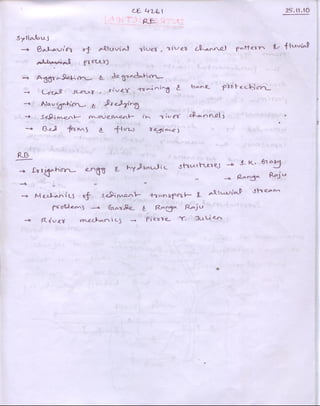 CE 4261
25.11.10
RE
Syllabus
→ Behavior of alluvial river, river channel pattern & fluvial
process
→ Aggradation & degradation
→ Local scour, river training & bank protection
→ Navigation & dredging
→ Sediment movement in river channels
→ Bed forms & flow regimes
RB
→ Irrigation engg & hydraulic structures → S.K. Garg
→ " " " " → Ranga Raju
→ Mechanics of sediment transport & alluvial stream
problems → Garde & Ranga Raju
→ River mechanics → Pierre Y. Julien